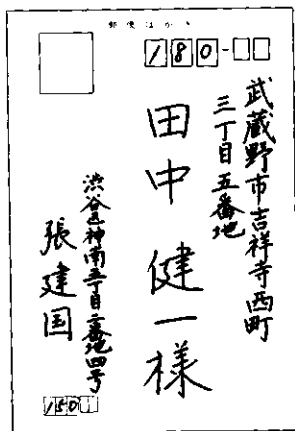 郵便はがき
180-
武蔵野市吉祥寺西町
三丁目五番地
田中健一様
渋谷区神南五丁目二番地四号
張建国
150